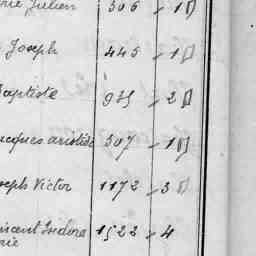 Julien 306 - 1
Joseph 445 - 1
Baptiste 925 - 2
Jacques aristide 507 - 1
Joseph Victor 1172 - 3
Vincent Isidore 1522 - 4